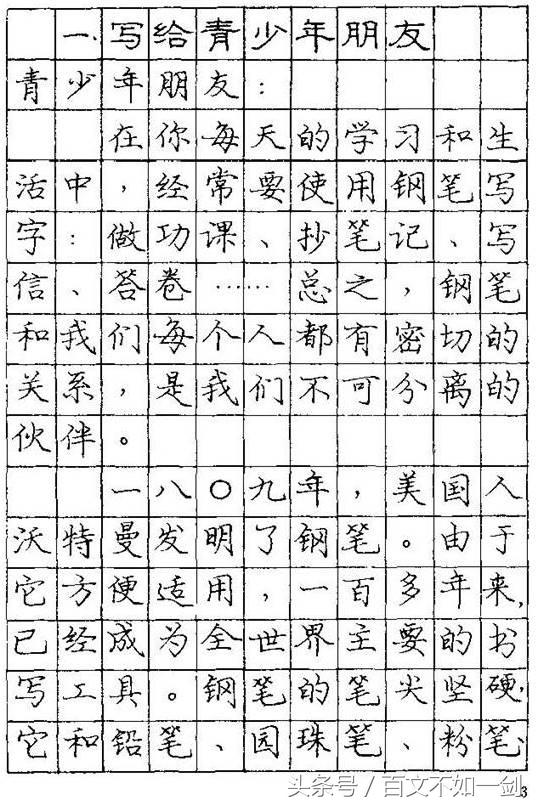 一、写给青少年朋友
青少年朋友：
在你每天的学习和生
活中，经常要使用钢笔写
字：做功课、抄笔记、写
信、答卷……总之，钢笔
和我们每个人都有密切的
关系，是我们不可分离的
伙伴。
一八〇九年，美国人
沃特曼发明了钢笔。由于
它方便适用，一百多年来，
已经成为全世界主要的书
写工具。钢笔的笔尖坚硬，
它和铅笔、园珠笔、粉笔、
头条号／百文不如一剑
3